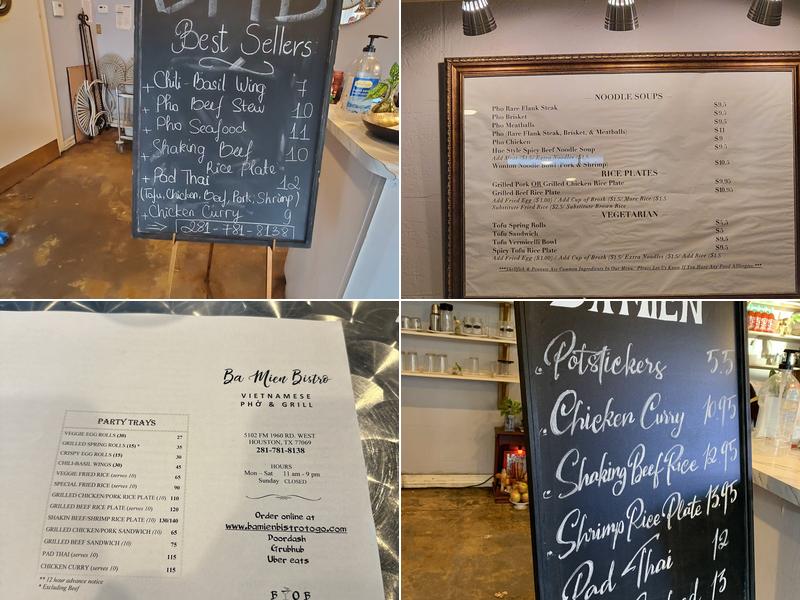 Best Sellers
+ Chili-Basil Wing 7
+ Pho Beef Stew 10
+ Pho Seafood 11
+ Shaking Beef Rice Plate 10
+ Pad Thai 12
(Tofu, Chicken, Beef, Pork, Shrimp)
+ Chicken Curry 9
281-781-8138
NOODLE SOUPS
Pho Rare Flank Steak $9.5
Pho Brisket $9.5
Pho Meatballs $9.5
Pho (Rare Flank Steak, Brisket, & Meatballs) $11
Pho Chicken $9
Hue Style Spicy Beef Noodle Soup $9.5
Add Meat ($1.5) Extra Noodles ($1.5)
Wonton Noodle Bowl (Pork & Shrimp) $10.5
RICE PLATES
Grilled Pork OR Grilled Chicken Rice Plate $9.95
Grilled Beef Rice Plate $10.95
Add Fried Egg ($1.00) / Add Cup of Broth ($1.5)/ More Rice ($1.5)
Substitute Fried Rice ($2.5)/ Substitute Brown Rice
VEGETARIAN
Tofu Spring Rolls
Tofu Sandwich $5
Tofu Vermicelli Bowl $9.5
Spicy Tofu Rice Plate $9.5
Add Fried Egg ($1.00) / Add Cup of Broth ($1.5)/ Extra Noodles ($1.5)/ Add Rice ($1.5)
***Shellfish & Peanuts Are Common Ingredients In Our Menu. Please Let Us Know If You Have Any Food Allergies.***
Ba Mien Bistro
VIETNAMESE
PHỞ & GRILL
5102 FM 1960 RD. WEST
HOUSTON, TX 77069
281-781-8138
HOURS
Mon – Sat 11 am - 9 pm
Sunday CLOSED
Order online at
www.bamienbistrotogo.com
Doordash
Grubhub
Uber eats
PARTY TRAYS
VEGGIE EGG ROLLS (30) 27
GRILLED SPRING ROLLS (15) * 35
CRISPY EGG ROLLS (15) 30
CHILI-BASIL WINGS (30) 45
VEGGIE FRIED RICE (serves 10) 65
SPECIAL FRIED RICE (serves 10) 90
GRILLED CHICKEN/PORK RICE PLATE (10) 110
GRILLED BEEF RICE PLATE (serves 10) 120
SHAKIN BEEF/SHRIMP RICE PLATE (10) 130/140
GRILLED CHICKEN/PORK SANDWICH (10) 65
GRILLED BEEF SANDWICH (10) 75
PAD THAI (serves 10) 115
CHICKEN CURRY (serves 10) 115
** 12 hour advance notice
* Excluding Beef
BAMIEN
Potstickers 5.5
Chicken Curry 10.95
Shaking Beef Rice 12.95
Shrimp Rice Plate 13.95
Pad Thai 12
13